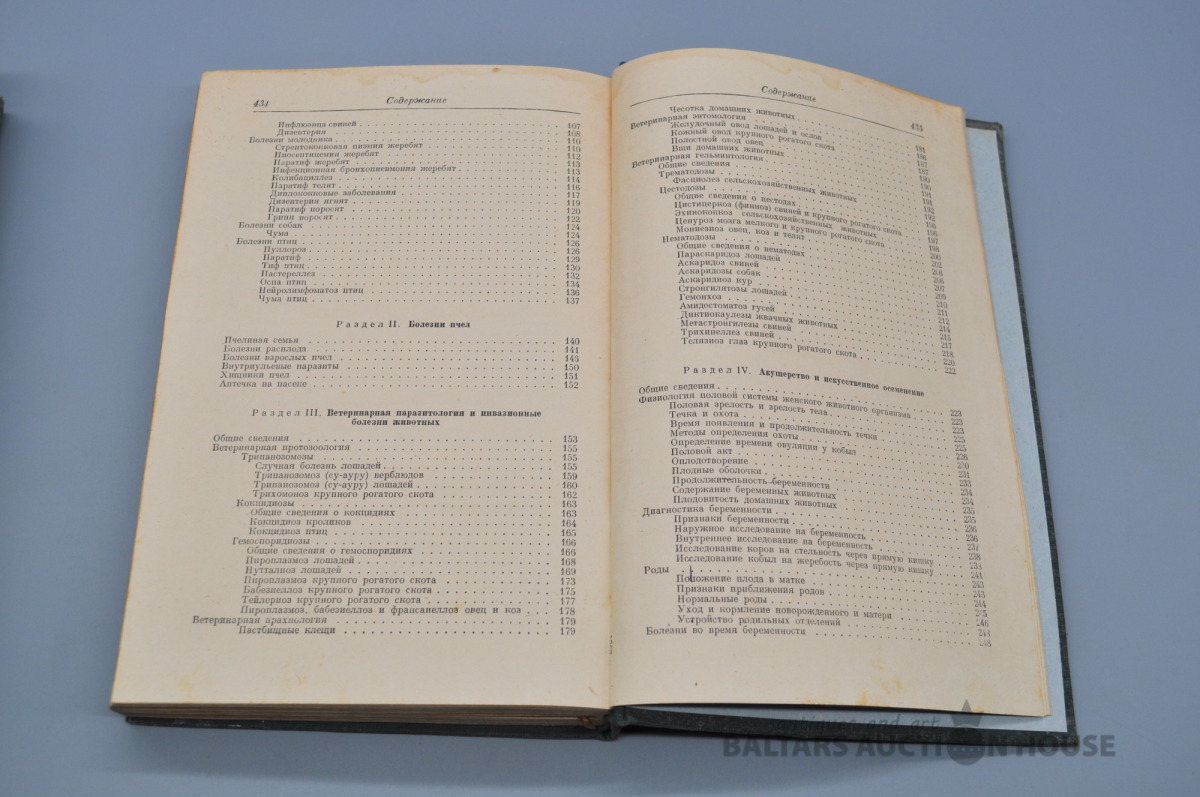 434 Содержание
Инфлюэнца свиней 107
Дизентерия 108
Болезни молодняка 110
Стрептококковая пиэмия жеребят 110
Пиосептицемия жеребят 112
Паратиф жеребят 113
Инфекционная бронхопневмония жеребят 113
Колибациллез 114
Паратиф телят 116
Диплококковые заболевания 117
Дизентерия ягнят 119
Паратиф поросят 120
Грипп поросят 122
Болезни собак 124
Чума 124
Болезни птиц 126
Пуллороз 126
Паратиф 129
Тиф птиц 130
Пастереллез 132
Оспа птиц 134
Нейролимфоматоз птиц 136
Чума птиц 137
Раздел II. Болезни пчел
Пчелиная семья 140
Болезни расплода 141
Болезни взрослых пчел 143
Внутриульевые паразиты 150
Хищники пчел 151
Аптечка на пасеке 152
Раздел III. Ветеринарная паразитология и инвазионные
болезни животных
Общие сведения 153
Ветеринарная протозоология 155
Трипанозомозы 155
Случная болезнь лошадей 155
Трипанозомоз (су-ауру) верблюдов 159
Трипанозомоз (су-ауру) лошадей 160
Трихомоноз крупного рогатого скота 162
Кокцидиозы 163
Общие сведения о кокцидиях 163
Кокцидиоз кроликов 164
Кокцидиоз птиц 165
Гемоспоридиозы 166
Общие сведения о гемоспоридиях 166
Пироплазмоз лошадей 168
Нутталиоз лошадей 169
Пироплазмоз крупного рогатого скота 173
Бабезиеллоз крупного рогатого скота 175
Тейлериоз крупного рогатого скота 177
Пироплазмоз, бабезиеллоз и франсаиеллоз овец и коз 178
Ветеринарная арахнология 179
Пастбищные клещи 179
Содержание 435
Чесотка домашних животных 181
Ветеринарная энтомология
Желудочный овод лошадей и ослов
Кожный овод крупного рогатого скота
Полостной овод овец
Вши домашних животных
Ветеринарная гельминтология
Общие сведения
Трематодозы
Фасциолез сельскохозяйственных животных
Цестодозы
Общие сведения о цестодах
Цистицеркоз (финноз) свиней и крупного рогатого скота
Эхинококкоз сельскохозяйственных животных
Ценуроз мозга мелкого и крупного рогатого скота
Мониезиоз овец, коз и телят
Нематодозы
Общие сведения о нематодах
Параскаридоз лошадей
Аскаридоз свиней
Аскаридозы собак
Аскаридиоз кур
Стронгилятозы лошадей
Гемонхоз
Амидостоматоз гусей
Диктиокаулезы жвачных животных
Метастронгилезы свиней
Трихинеллез свиней
Телязиоз глаз крупного рогатого скота 222
Раздел IV. Акушерство и искусственное осеменение
Общие сведения 223
Физиология половой системы женского животного организма 223
Половая зрелость и зрелость тела
Течка и охота
Время появления и продолжительность течки
Методы определения охоты
Определение времени овуляции у кобыл
Половой акт
Оплодотворение
Плодные оболочки
Продолжительность беременности
Содержание беременных животных
Плодовитость домашних животных
Диагностика беременности
Признаки беременности
Наружное исследование на беременность
Внутреннее исследование на беременность
Исследование коров на стельность через прямую кишку
Исследование кобыл на жеребость через прямую кишку
Роды
Положение плода в матке
Признаки приближения родов
Нормальные роды
Уход и кормление новорожденного и матери
Устройство родильных отделений
Болезни во время беременности
antiques and art
BALTARS AUCTION HOUSE